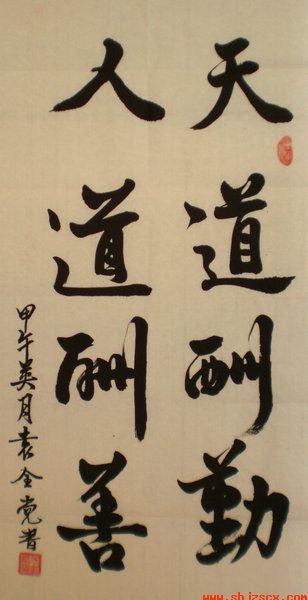 天道酬勤
人道酬善
甲午英月袁全党书
www.shjzscx.com